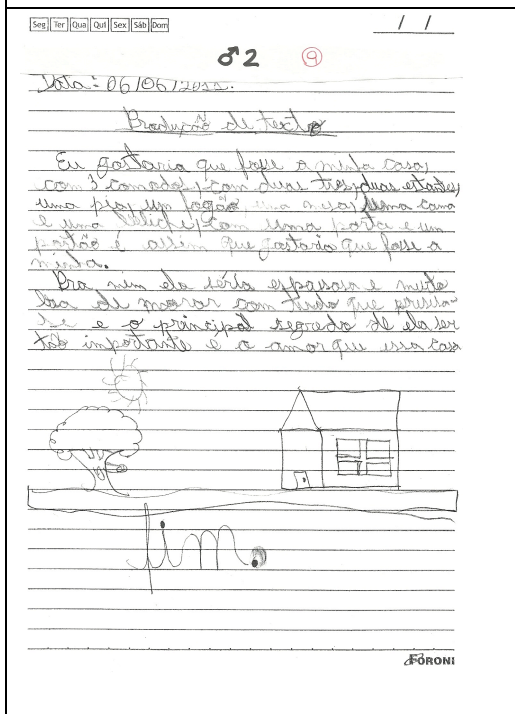 Seg Ter Qua Qui Sex Sáb Dom
/ /
♂2 9
Data: 06/06/2011.
Produção de texto
Eu gostaria que fosse a minha casa,
com 3 comodos, com duas tres, duas estantes,
uma pia, um fogão, uma mesa, uma cama
e uma biliche, com uma porta e um
portão é assim que gostaria que fosse a
minha.
Pra mim ela séria espasosa e muito
boa de morar com tudo que presisa-
se e o principal segredo de ela ser
tão importante e o amor que essa casa
fim.
FORONI